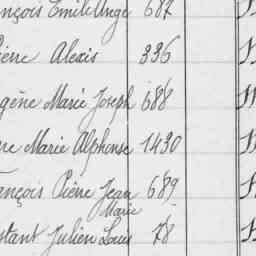 nçois Emile Ange 687
ierre Alexis 336
gène Marie Joseph 688
re Marie Alphonse 1430
ançois Pierre Jean 689
Marie
stant Julien Louis 78